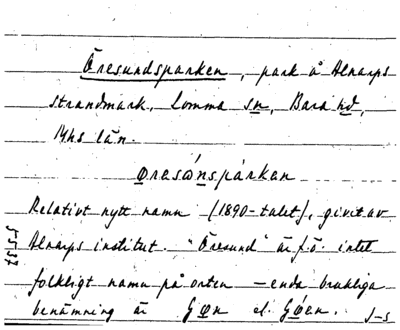 Öresundsparken, park å Alnarps
strandmark, Lomma sn, Bara hd,
Mhs län.
øresónspárkan
Relativt nytt namn (1890-talet), givit av
Alnarps institut. "Öresund" är f.ö. intet
folkligt namn på orten – enda brukliga
benämning är Gøn el. Gǿen.
5-5 37